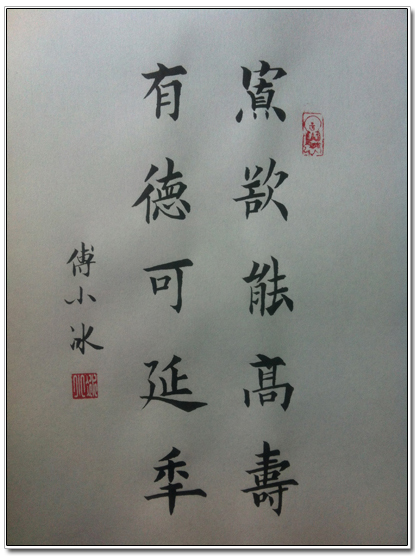 寡欲能髙壽
有德可延年
傅小冰